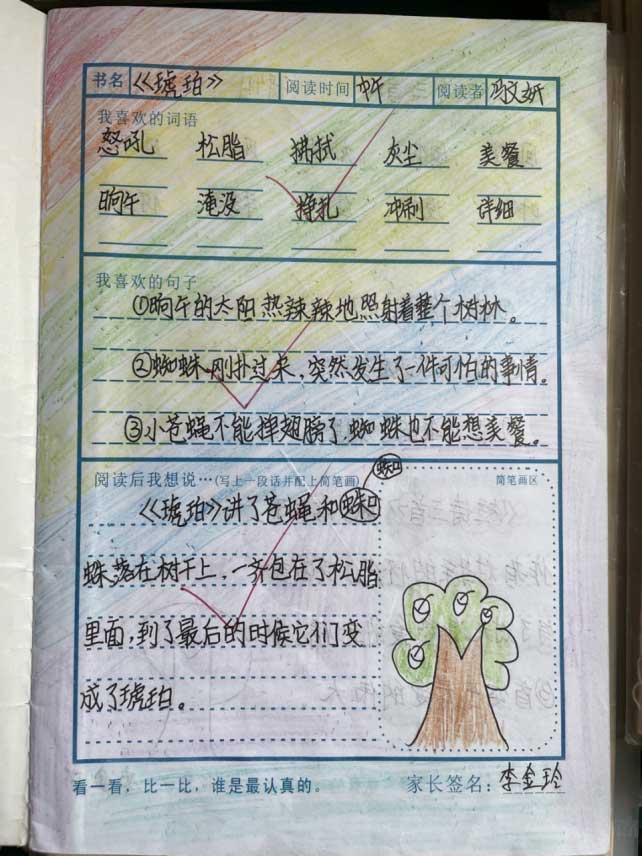 书名 《琥珀》 阅读时间 中午 阅读者 冯文妍
我喜欢的词语
怒吼 松脂 拂拭 灰尘 美餐
晌午 淹没 挣扎 冲刷 详细
我喜欢的句子
①晌午的太阳热辣辣地照射着整个树林。
②蜘蛛刚扑过来，突然发生了一件可怕的事情。
③小苍蝇不能掸翅膀了，蜘蛛也不能想美餐。
阅读后我想说…(写上一段话并配上简笔画)
简笔画区
《琥珀》讲了苍蝇和
蛛落在树干上，一齐包在了松脂
里面，到了最后的时候它们变
成了琥珀。
看一看，比一比，谁是最认真的。 家长签名：李金玲